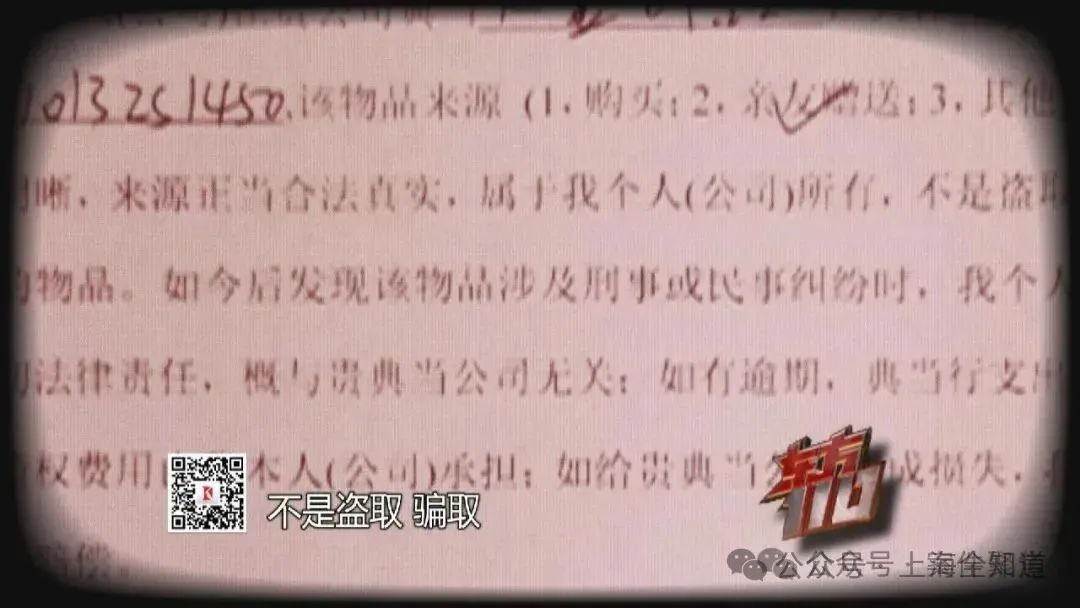 013251450.该物品来源(1,购买;2,亲友赠送;3,其他
晰,来源正当合法真实,属于我个人(公司)所有,不是盗取
的物品。如今后发现该物品涉及刑事或民事纠纷时,我个人
的法律责任,概与贵典当公司无关;如有逾期,典当行支出
权费用 本人(公司)承担;如给贵典当 成损失,
赔偿。
不是盗取 骗取
东方110
公众号 上海全知道